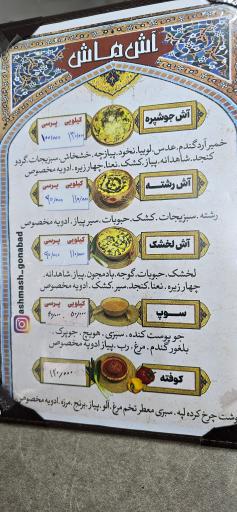 آش ماش
آش جوشپره
کیلویی پرسی
خمیر آرد گندم، عدس، لوبیا، نخود، پیازچه، خشخاش، سبزیجات، گردو
کنجد، شاهدانه، پیاز، کشک، نعنا، چهار زیره، ادویه مخصوص
آش رشته
کیلویی پرسی
۱۱۰/۰۰۰ ۹۰/۰۰۰
رشته، سبزیجات، کشک، حبوبات، سیر، پیاز، ادویه مخصوص
آش لخشک
کیلویی پرسی
۱۱۰/۰۰۰ ۹۰/۰۰۰
لخشک، حبوبات، گوجه، بادمجون، پیاز، شاهدانه،
چهار زیره، نعنا، کنجد، سیر، کشک، ادویه مخصوص
سوپ
کیلویی پرسی
جو پوست کنده، سبزی، هویج، جوپرک،
بلغور گندم، مرغ، رب، پیاز، ادویه مخصوص
کوفته
۱۲۰/۰۰۰
گوشت چرخ کرده، لپه، سبزی معطر، تخم مرغ، آلو، پیاز، برنج، مرزه، ادویه مخصوص
ashmash_gonabad